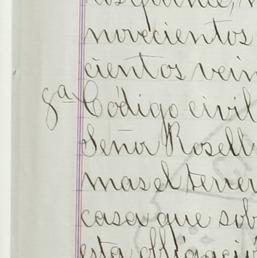 novecientos
cientos vein
ga Codigo civil
Señor Rosell
mas el terren
casa que sob
esta obligació